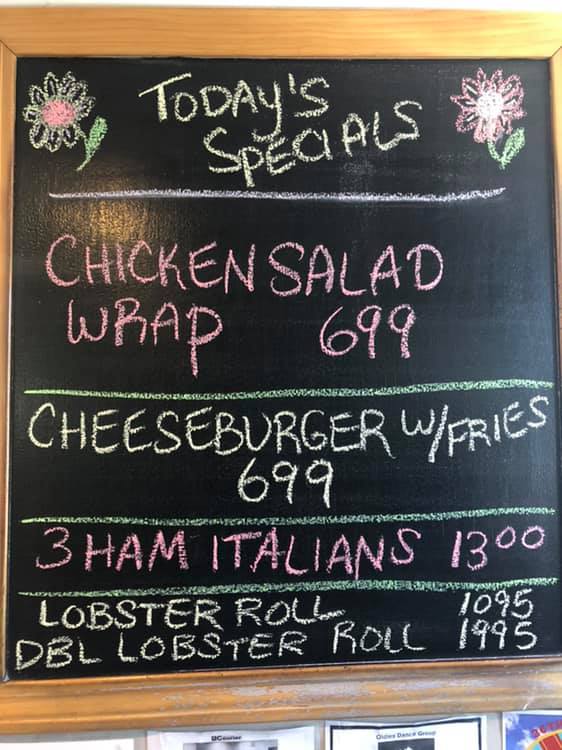 TODAY'S
SPECIALS
CHICKEN SALAD
WRAP 699
CHEESEBURGER W/FRIES
699
3 HAM ITALIANS 1300
LOBSTER ROLL 1095
DBL LOBSTER ROLL 1995
Oldies Dance Group